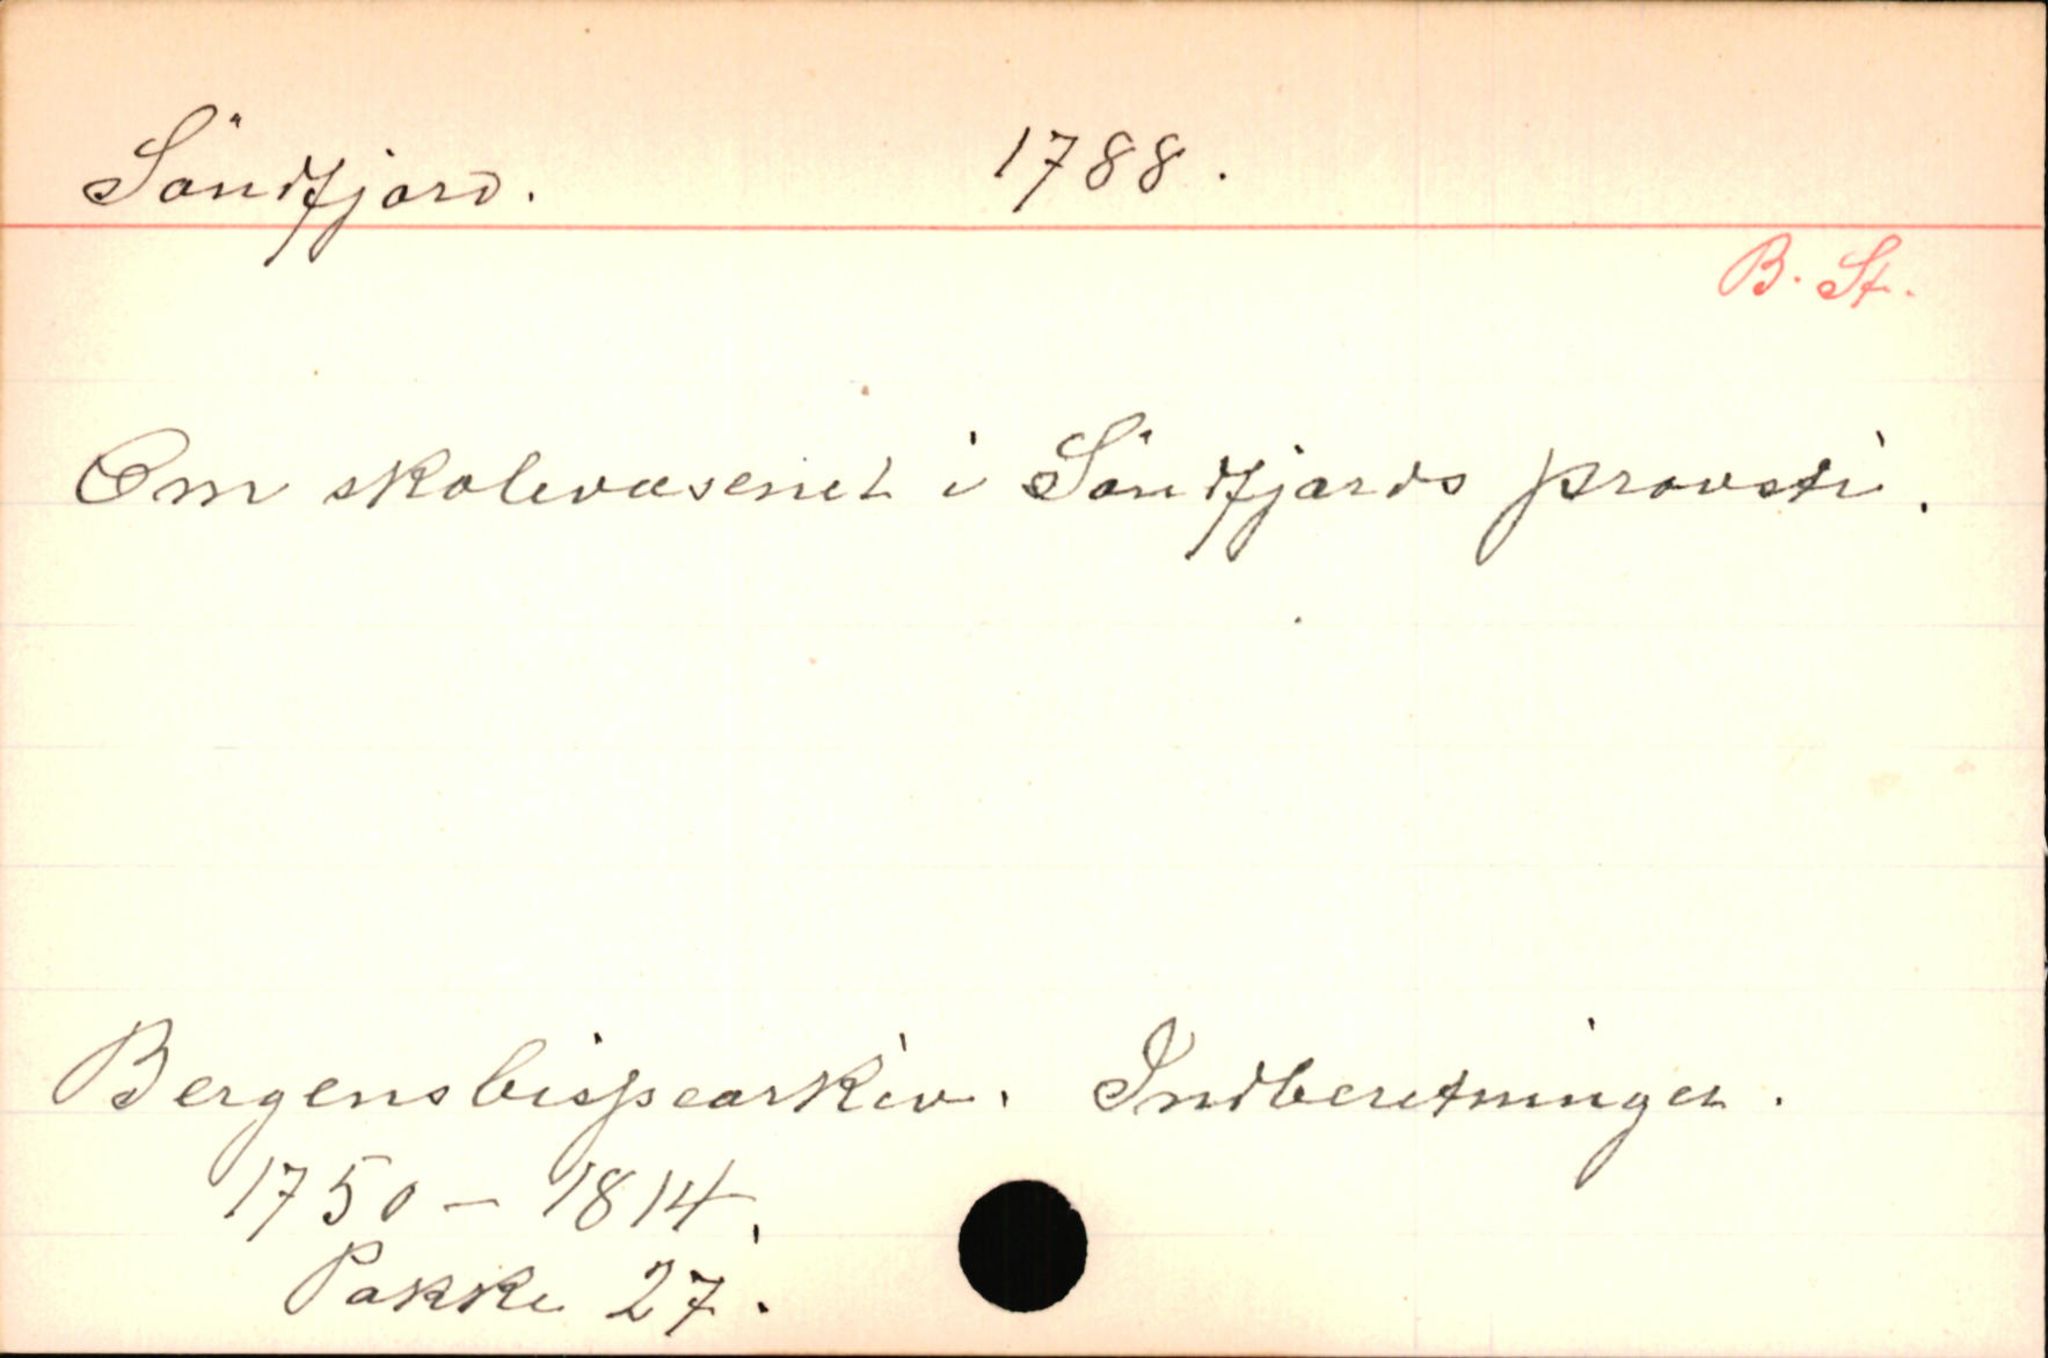 Söndfjord. 1788.
B. St.
Om skolevæsenet i Söndfjords provsti.
Bergens bispearkiv. Indberetninger.
1750 - 1814.
Pakke 27.